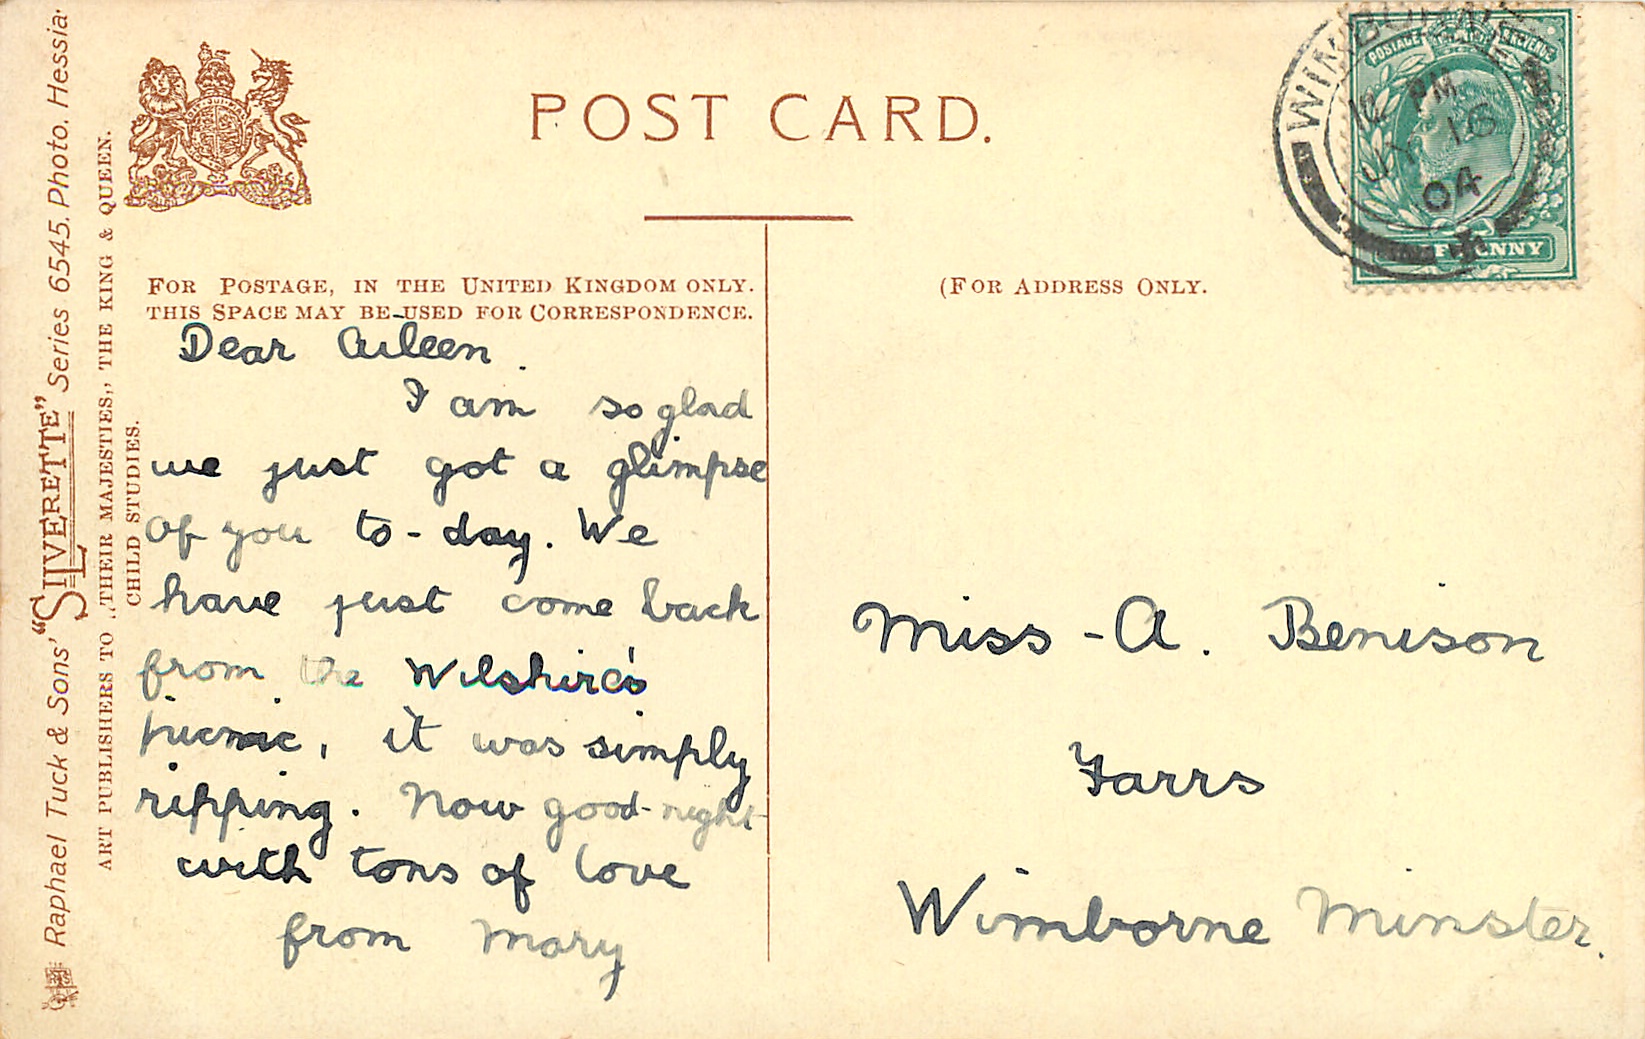 POST CARD.
FOR POSTAGE, IN THE UNITED KINGDOM ONLY.
THIS SPACE MAY BE USED FOR CORRESPONDENCE.
(FOR ADDRESS ONLY.
Dear Aileen.
I am so glad
we just got a glimpse
of you to-day. We
have just come back
from the Wilshire's
picnic, it was simply
ripping. Now good-night
with tons of love
from Mary
Miss A. Benison
Farrs
Wimborne Minster.
Raphael Tuck & Sons' "SILVERETTE" Series 6545. Photo. Hessia.
ART PUBLISHERS TO „THEIR MAJESTIES„ THE KING & QUEEN.
CHILD STUDIES.
WIMBORNE
PM
JY 16
04
POSTAGE REVENUE
PENNY